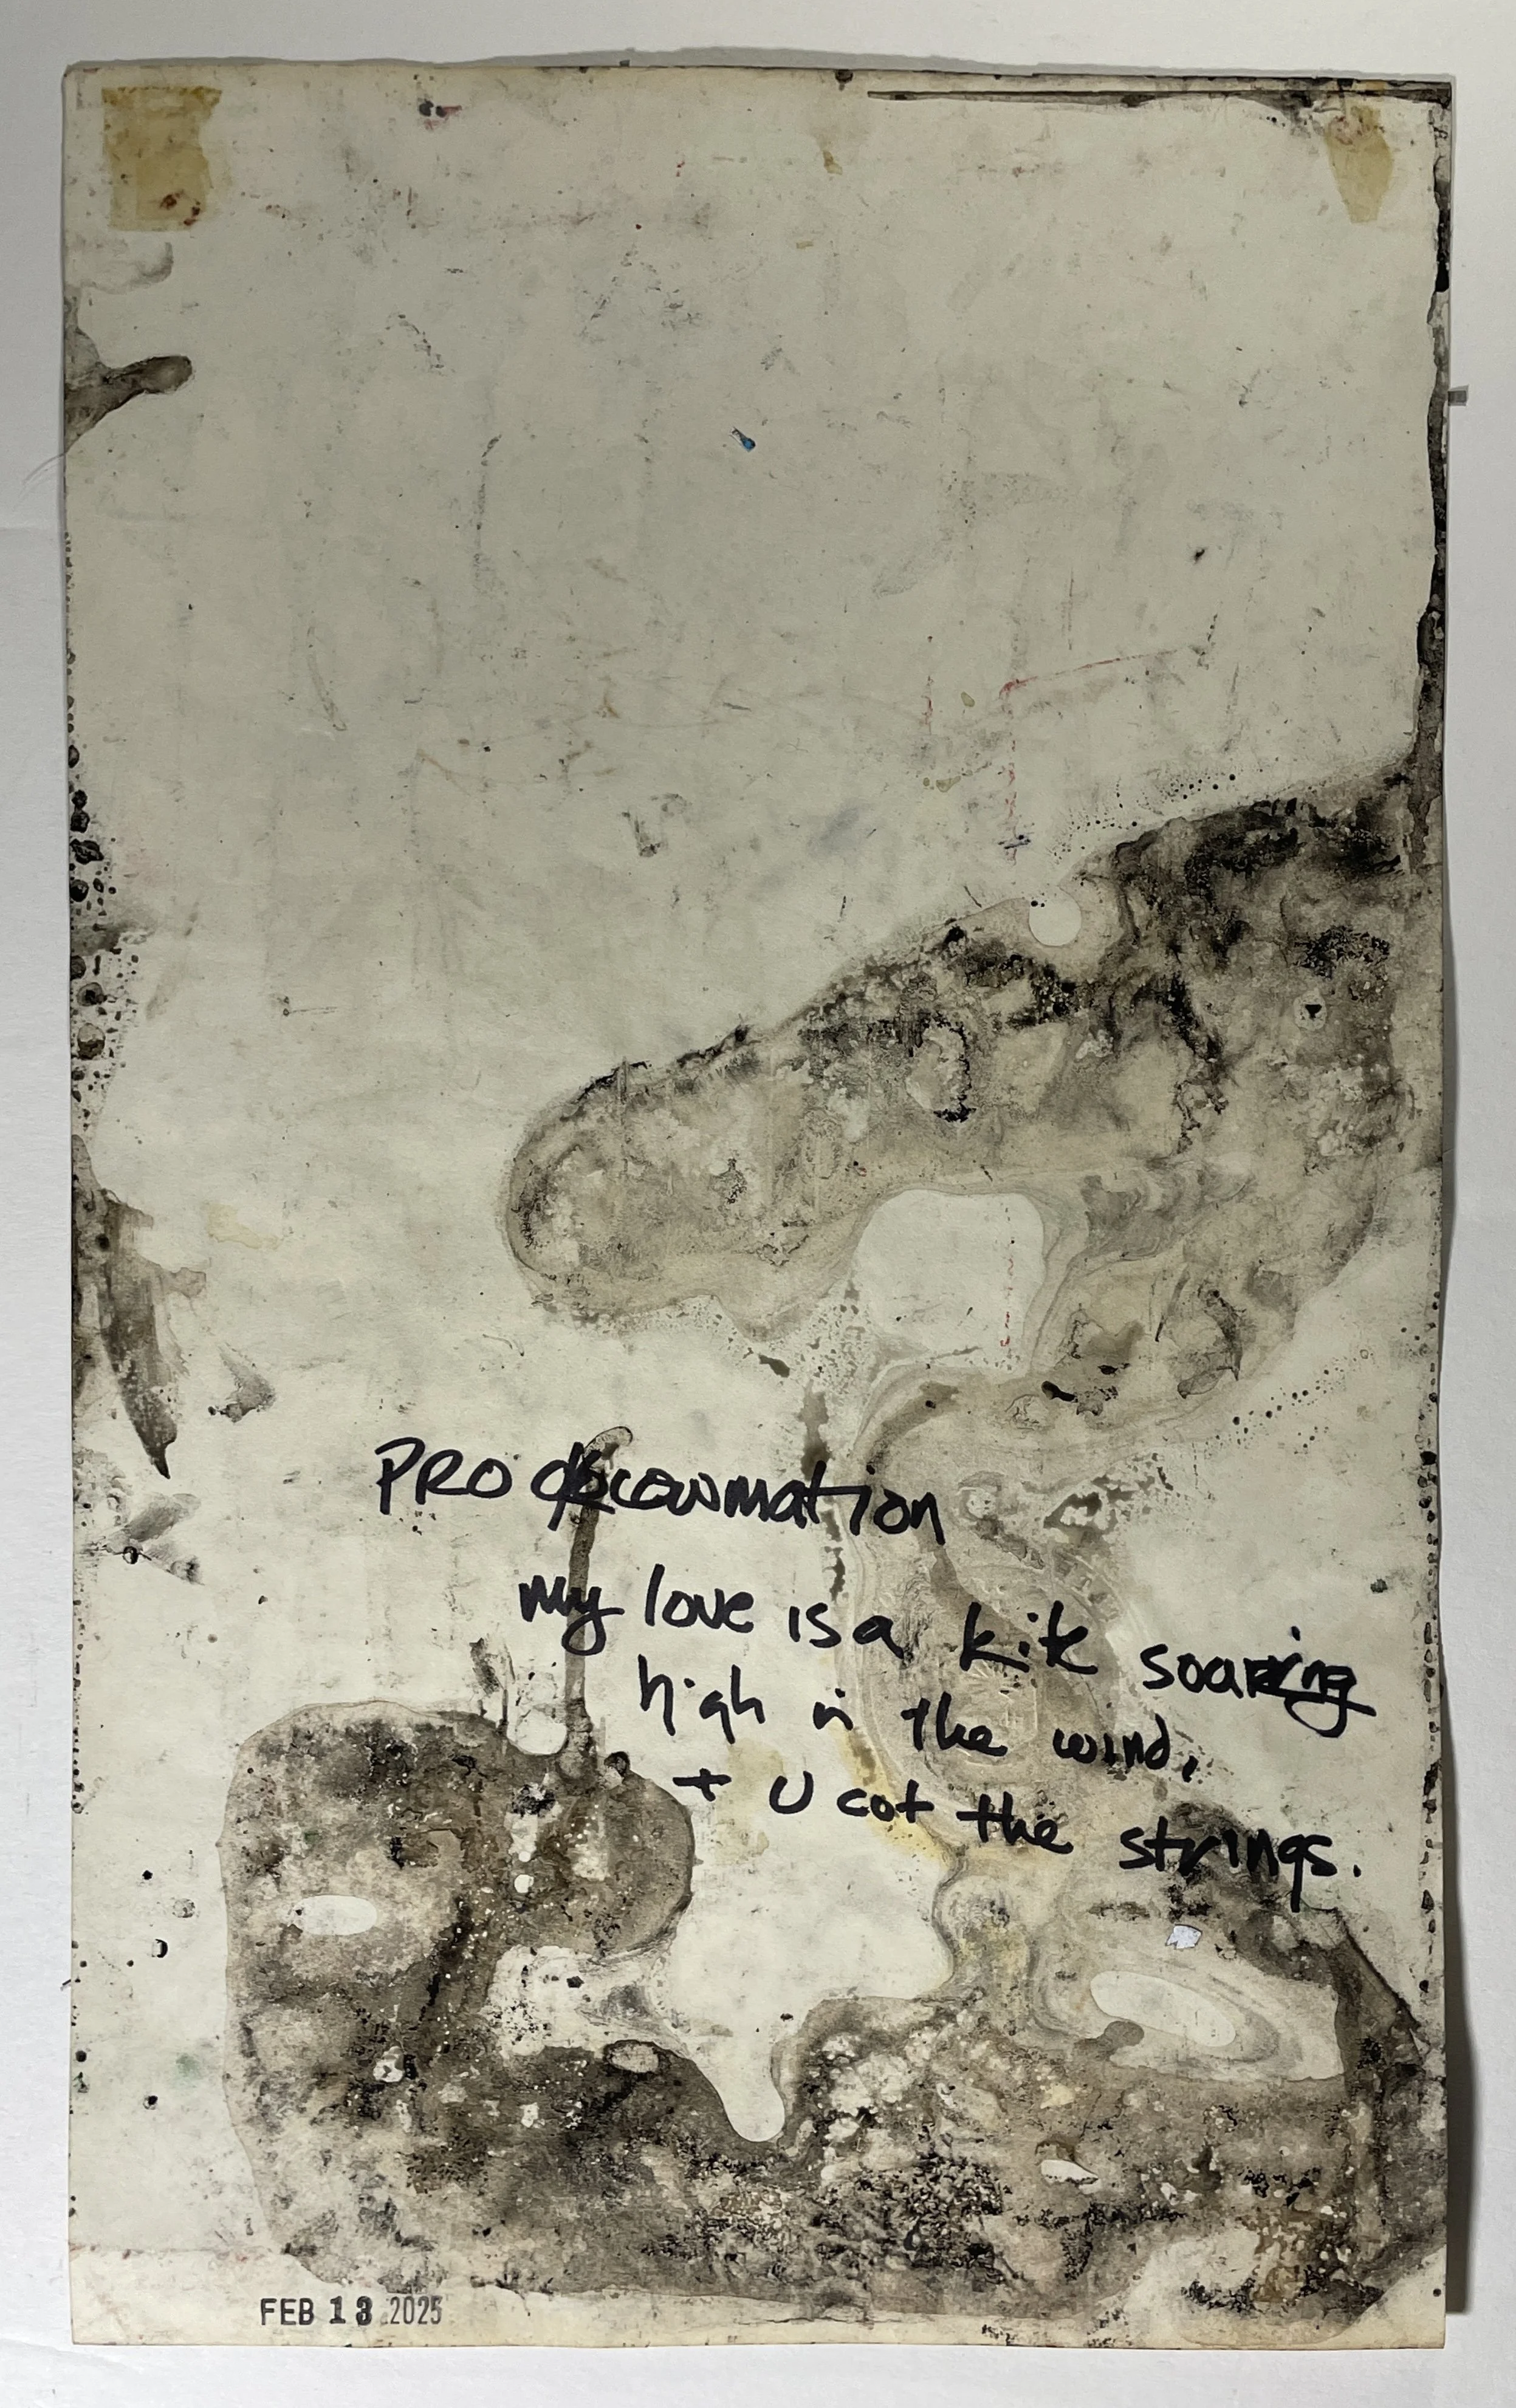 PRO
my love is a kite soaring
high in the wind,
+ U cut the strings.
FEB 13 2025